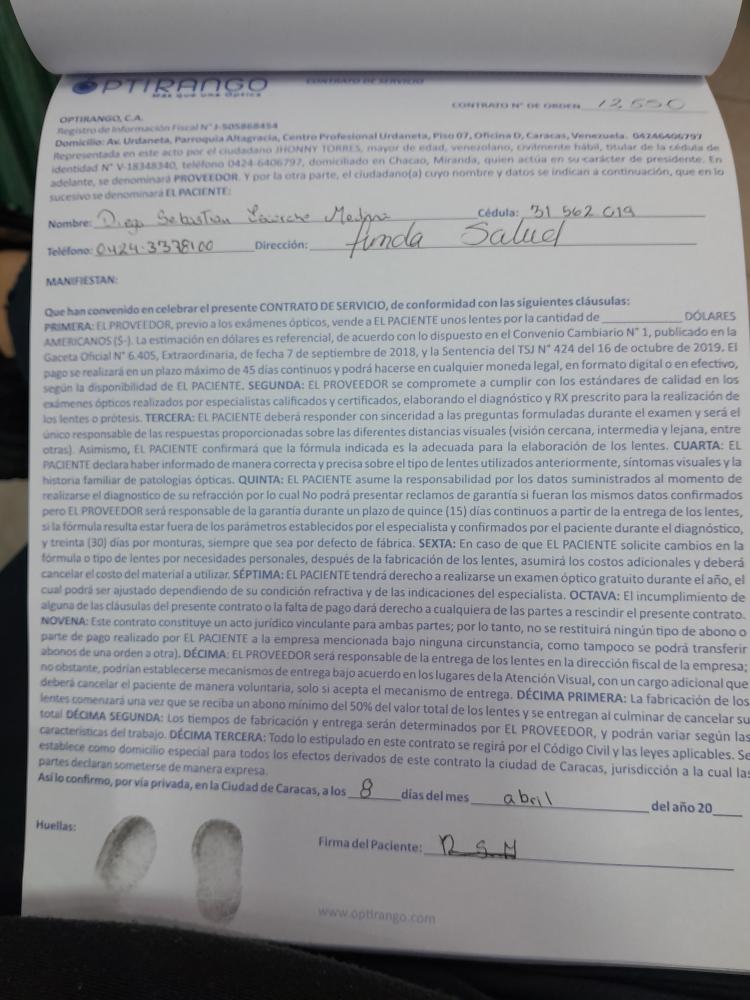 OPTIRANGO
Más que una Óptica
CONTRATO DE SERVICIO
CONTRATO N° DE ORDEN 12,550
OPTIRANGO, C.A.
Registro de Información Fiscal N° J-505868454
Domicilio: Av. Urdaneta, Parroquia Altagracia, Centro Profesional Urdaneta, Piso 07, Oficina D, Caracas, Venezuela. 04246406797
Representada en este acto por el ciudadano JHONNY TORRES, mayor de edad, venezolano, civilmente hábil, titular de la cédula de
identidad N° V-18348340, teléfono 0424-6406797, domiciliado en Chacao, Miranda, quien actúa en su carácter de presidente. En
adelante, se denominará PROVEEDOR. Y por la otra parte, el ciudadano(a) cuyo nombre y datos se indican a continuación, que en lo
sucesivo se denominará EL PACIENTE:
Nombre: Diego Sebastian Medina Cédula: 31 562 019
Teléfono: 0424-3378100 Dirección: funda Salud
MANIFIESTAN:
Que han convenido en celebrar el presente CONTRATO DE SERVICIO, de conformidad con las siguientes cláusulas:
PRIMERA: EL PROVEEDOR, previo a los exámenes ópticos, vende a EL PACIENTE unos lentes por la cantidad de ________ DÓLARES
AMERICANOS ($-). La estimación en dólares es referencial, de acuerdo con lo dispuesto en el Convenio Cambiario N° 1, publicado en la
Gaceta Oficial N° 6.405, Extraordinaria, de fecha 7 de septiembre de 2018, y la Sentencia del TSJ N° 424 del 16 de octubre de 2019. El
pago se realizará en un plazo máximo de 45 días continuos y podrá hacerse en cualquier moneda legal, en formato digital o en efectivo,
según la disponibilidad de EL PACIENTE. SEGUNDA: EL PROVEEDOR se compromete a cumplir con los estándares de calidad en los
exámenes ópticos realizados por especialistas calificados y certificados, elaborando el diagnóstico y RX prescrito para la realización de
los lentes o prótesis. TERCERA: EL PACIENTE deberá responder con sinceridad a las preguntas formuladas durante el examen y será el
único responsable de las respuestas proporcionadas sobre las diferentes distancias visuales (visión cercana, intermedia y lejana, entre
otras). Asimismo, EL PACIENTE confirmará que la fórmula indicada es la adecuada para la elaboración de los lentes. CUARTA: EL
PACIENTE declara haber informado de manera correcta y precisa sobre el tipo de lentes utilizados anteriormente, síntomas visuales y la
historia familiar de patologías ópticas. QUINTA: EL PACIENTE asume la responsabilidad por los datos suministrados al momento de
realizarse el diagnostico de su refracción por lo cual No podrá presentar reclamos de garantía si fueran los mismos datos confirmados
pero EL PROVEEDOR será responsable de la garantía durante un plazo de quince (15) días continuos a partir de la entrega de los lentes,
si la fórmula resulta estar fuera de los parámetros establecidos por el especialista y confirmados por el paciente durante el diagnóstico,
y treinta (30) días por monturas, siempre que sea por defecto de fábrica. SEXTA: En caso de que EL PACIENTE solicite cambios en la
fórmula o tipo de lentes por necesidades personales, después de la fabricación de los lentes, asumirá los costos adicionales y deberá
cancelar el costo del material a utilizar. SÉPTIMA: EL PACIENTE tendrá derecho a realizarse un examen óptico gratuito durante el año, el
cual podrá ser ajustado dependiendo de su condición refractiva y de las indicaciones del especialista. OCTAVA: El incumplimiento de
alguna de las cláusulas del presente contrato o la falta de pago dará derecho a cualquiera de las partes a rescindir el presente contrato.
NOVENA: Este contrato constituye un acto jurídico vinculante para ambas partes; por lo tanto, no se restituirá ningún tipo de abono o
parte de pago realizado por EL PACIENTE a la empresa mencionada bajo ninguna circunstancia, como tampoco se podrá transferir
abonos de una orden a otra). DÉCIMA: EL PROVEEDOR será responsable de la entrega de los lentes en la dirección fiscal de la empresa;
no obstante, podrían establecerse mecanismos de entrega bajo acuerdo en los lugares de la Atención Visual, con un cargo adicional que
deberá cancelar el paciente de manera voluntaria, solo si acepta el mecanismo de entrega. DÉCIMA PRIMERA: La fabricación de los
lentes comenzará una vez que se reciba un abono mínimo del 50% del valor total de los lentes y se entregan al culminar de cancelar su
total DÉCIMA SEGUNDA: Los tiempos de fabricación y entrega serán determinados por EL PROVEEDOR, y podrán variar según las
características del trabajo. DÉCIMA TERCERA: Todo lo estipulado en este contrato se regirá por el Código Civil y las leyes aplicables. Se
establece como domicilio especial para todos los efectos derivados de este contrato la ciudad de Caracas, jurisdicción a la cual las
partes declaran someterse de manera expresa.
Así lo confirmo, por vía privada, en la Ciudad de Caracas, a los 8 días del mes abril del año 20___
Huellas:
Firma del Paciente: DSM
www.optirango.com